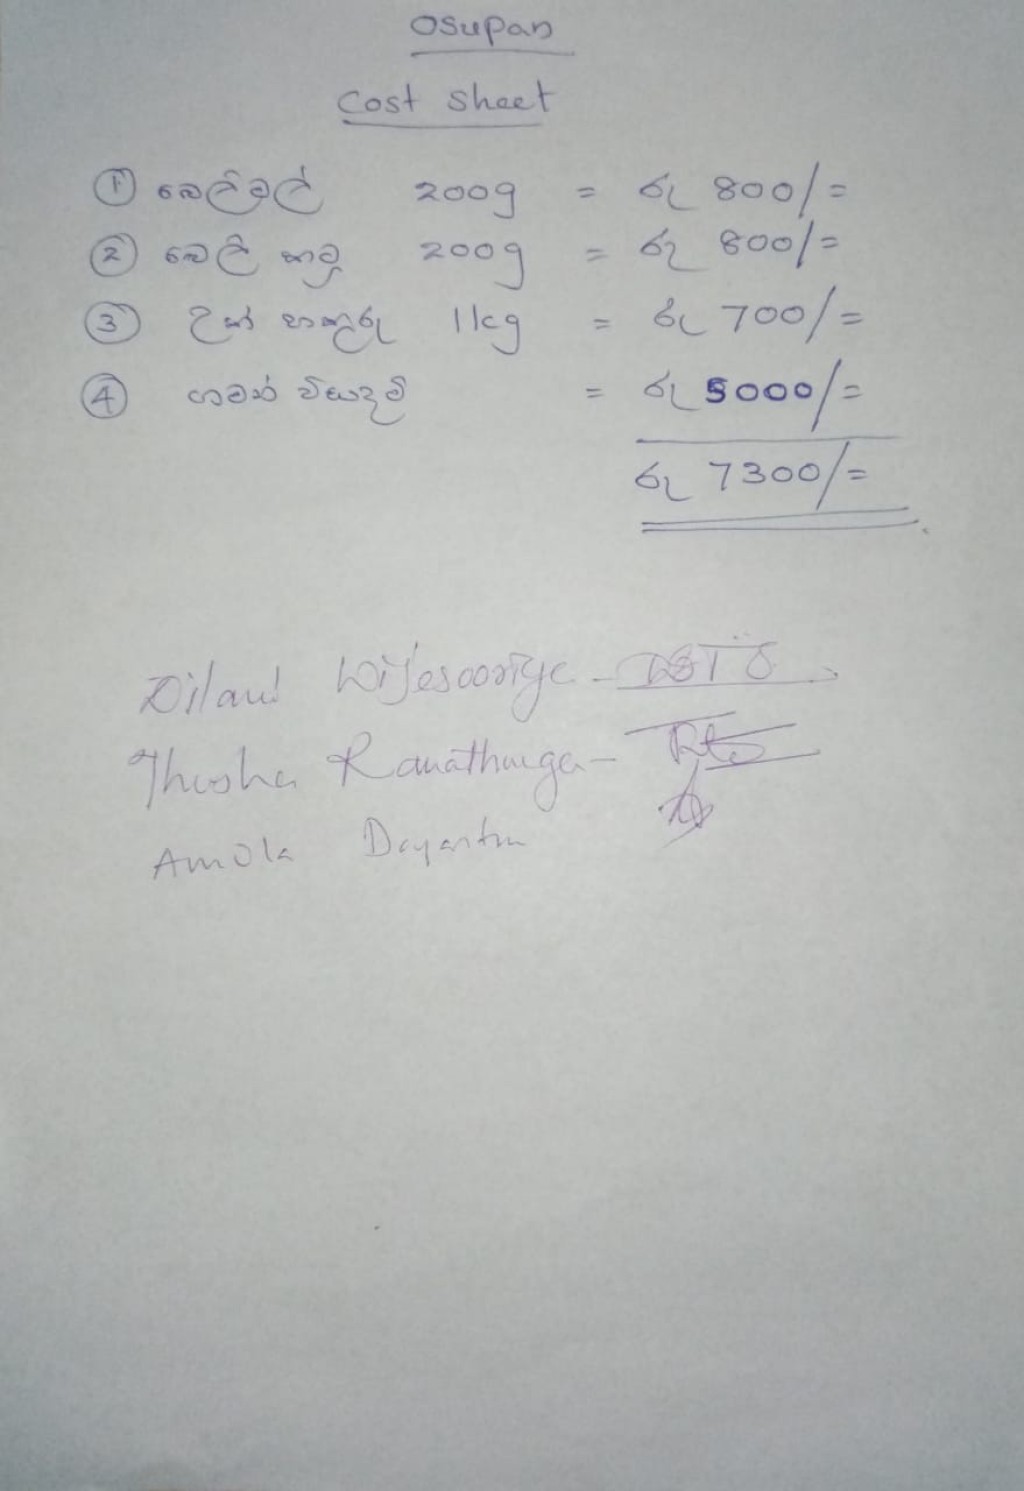 Osupan
Cost Sheet
① බෙලිමල් 200g = රු 800/=
② බෙලි කටු 200g = රු 800/=
③ උක් හකුරු 1kg = රු 700/=
④ ගමන් වියදම් = රු 5000/=
රු 7300/=
Dilani Wijesooriye -
Thusha Ranathunga -
Amola Dayantha